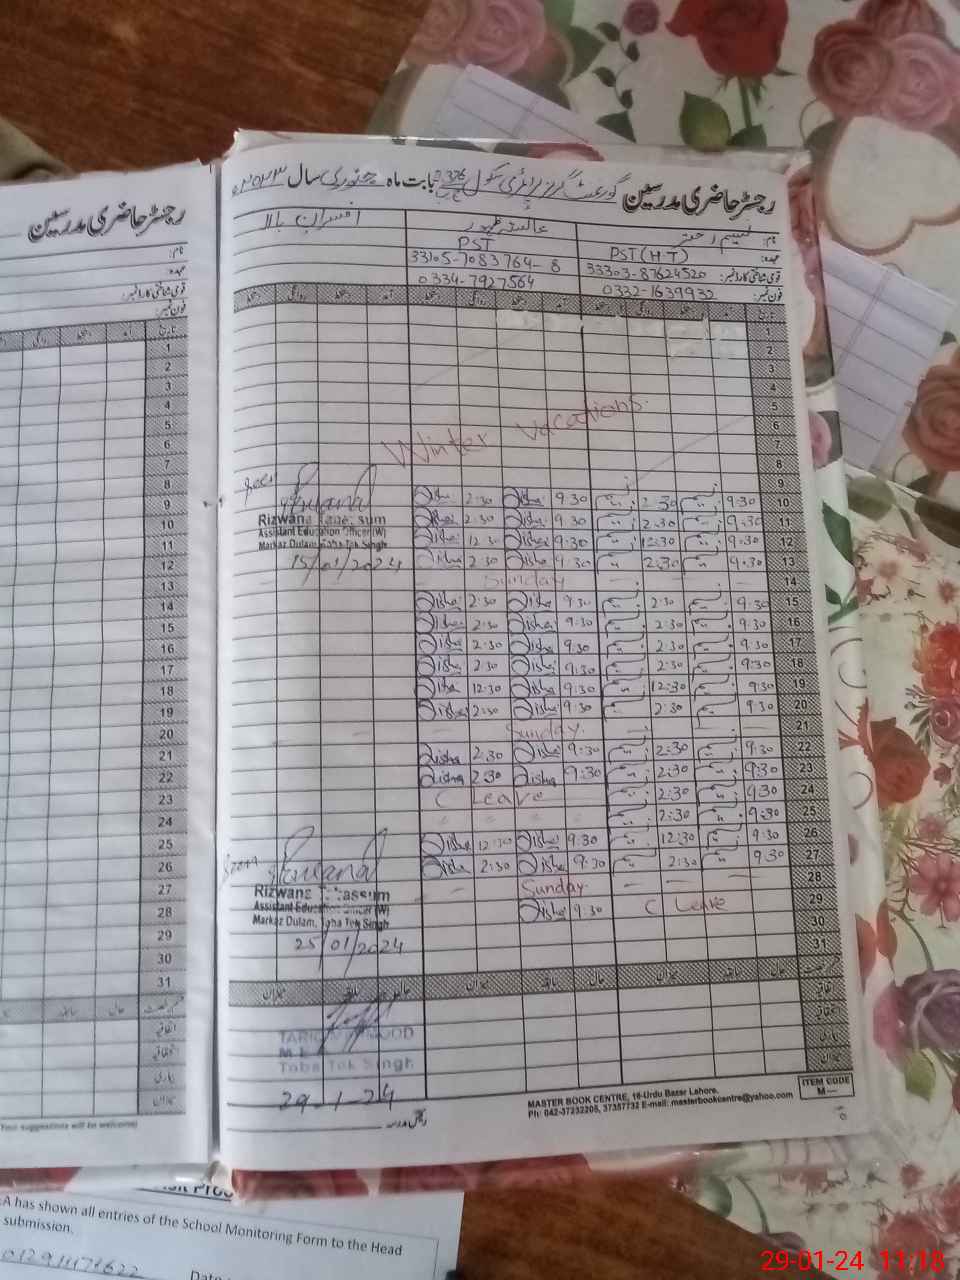 رجسٹر حاضری مدرسین گورنمنٹ گرلز پرائمری سکول 326 ج ب بابت ماہ جنوری سال
نام: نسیم اختر
افسران بالا
عہدہ: PST(H.T) PST
قومی شناختی کارڈ نمبر: 33303-87624520 33105-7083764-8
فون نمبر: 0332-1639932 0334-7927564
تاریخ آمد دستخط روانگی دستخط
1
2
3
4
5
Winter Vacations.
6
7
8
9
Seen
Aisha 2:30 Aisha 9.30 2:30 9:30 10
Rizwana Tabassum
Aisha 2:30 Aisha 9.30 2.30 9:30 11
Assistant Education Officer (W)
Aisha 12:30 Aisha 9:30 12:30 9:30 12
Markaz Dulam, Toba Tek Singh
15/01/2024
Aisha 2:30 Aisha 9:30 2:30 9:30 13
– Sunday – – – – 14
Aisha 2:30 Aisha 9:30 2:30 9:30 15
Aisha 2:30 Aisha 9:30 2:30 9:30 16
Aisha 2:30 Aisha 9:30 2:30 9:30 17
Aisha 2:30 Aisha 9:30 2:30 9:30 18
Aisha 12:30 Aisha 9:30 12:30 9:30 19
Aisha 2:30 Aisha 9:30 2:30 9:30 20
– – Sunday. – – – 21
Aisha 2:30 Aisha 9:30 2:30 9:30 22
Aisha 2:30 Aisha 9:30 2:30 9:30 23
C Leave 2:30 9:30 24
" " " " 2:30 9:30 25
Aisha 12:30 Aisha 9:30 12:30 9:30 26
Seen
Aisha 2:30 Aisha 9:30 2:30 9:30 27
Rizwana Tabassum
– Sunday. – – – 28
Assistant Education Officer (W)
Markaz Dulam, Toba Tek Singh
Aisha 9:30 C Leave 29
25/01/2024
30
31
قسم رخصت حال سابقہ میزان حال سابقہ میزان حال سابقہ میزان
اتفاقیہ
TARIQ MEHMOOD
Toba Tek Singh
بیماری
میزان
29-1-24
رئیس مدرسہ
MASTER BOOK CENTRE, 16-Urdu Bazar Lahore.
Ph: 042-37232205, 37357732 E-mail: masterbookcentre@yahoo.com
ITEM CODE
M—
رجسٹر حاضری مدرسین
نام:
عہدہ:
قومی شناختی کارڈ نمبر:
فون نمبر:
تاریخ آمد دستخط روانگی دستخط
1
2
3
4
5
6
7
8
9
10
11
12
13
14
15
16
17
18
19
20
21
22
23
24
25
26
27
28
29
30
31
قسم رخصت حال سابقہ
اتفاقیہ
بیماری
میزان
Your suggestions will be welcome)
A has shown all entries of the School Monitoring Form to the Head
submission.
Date
29-01-24 11:18